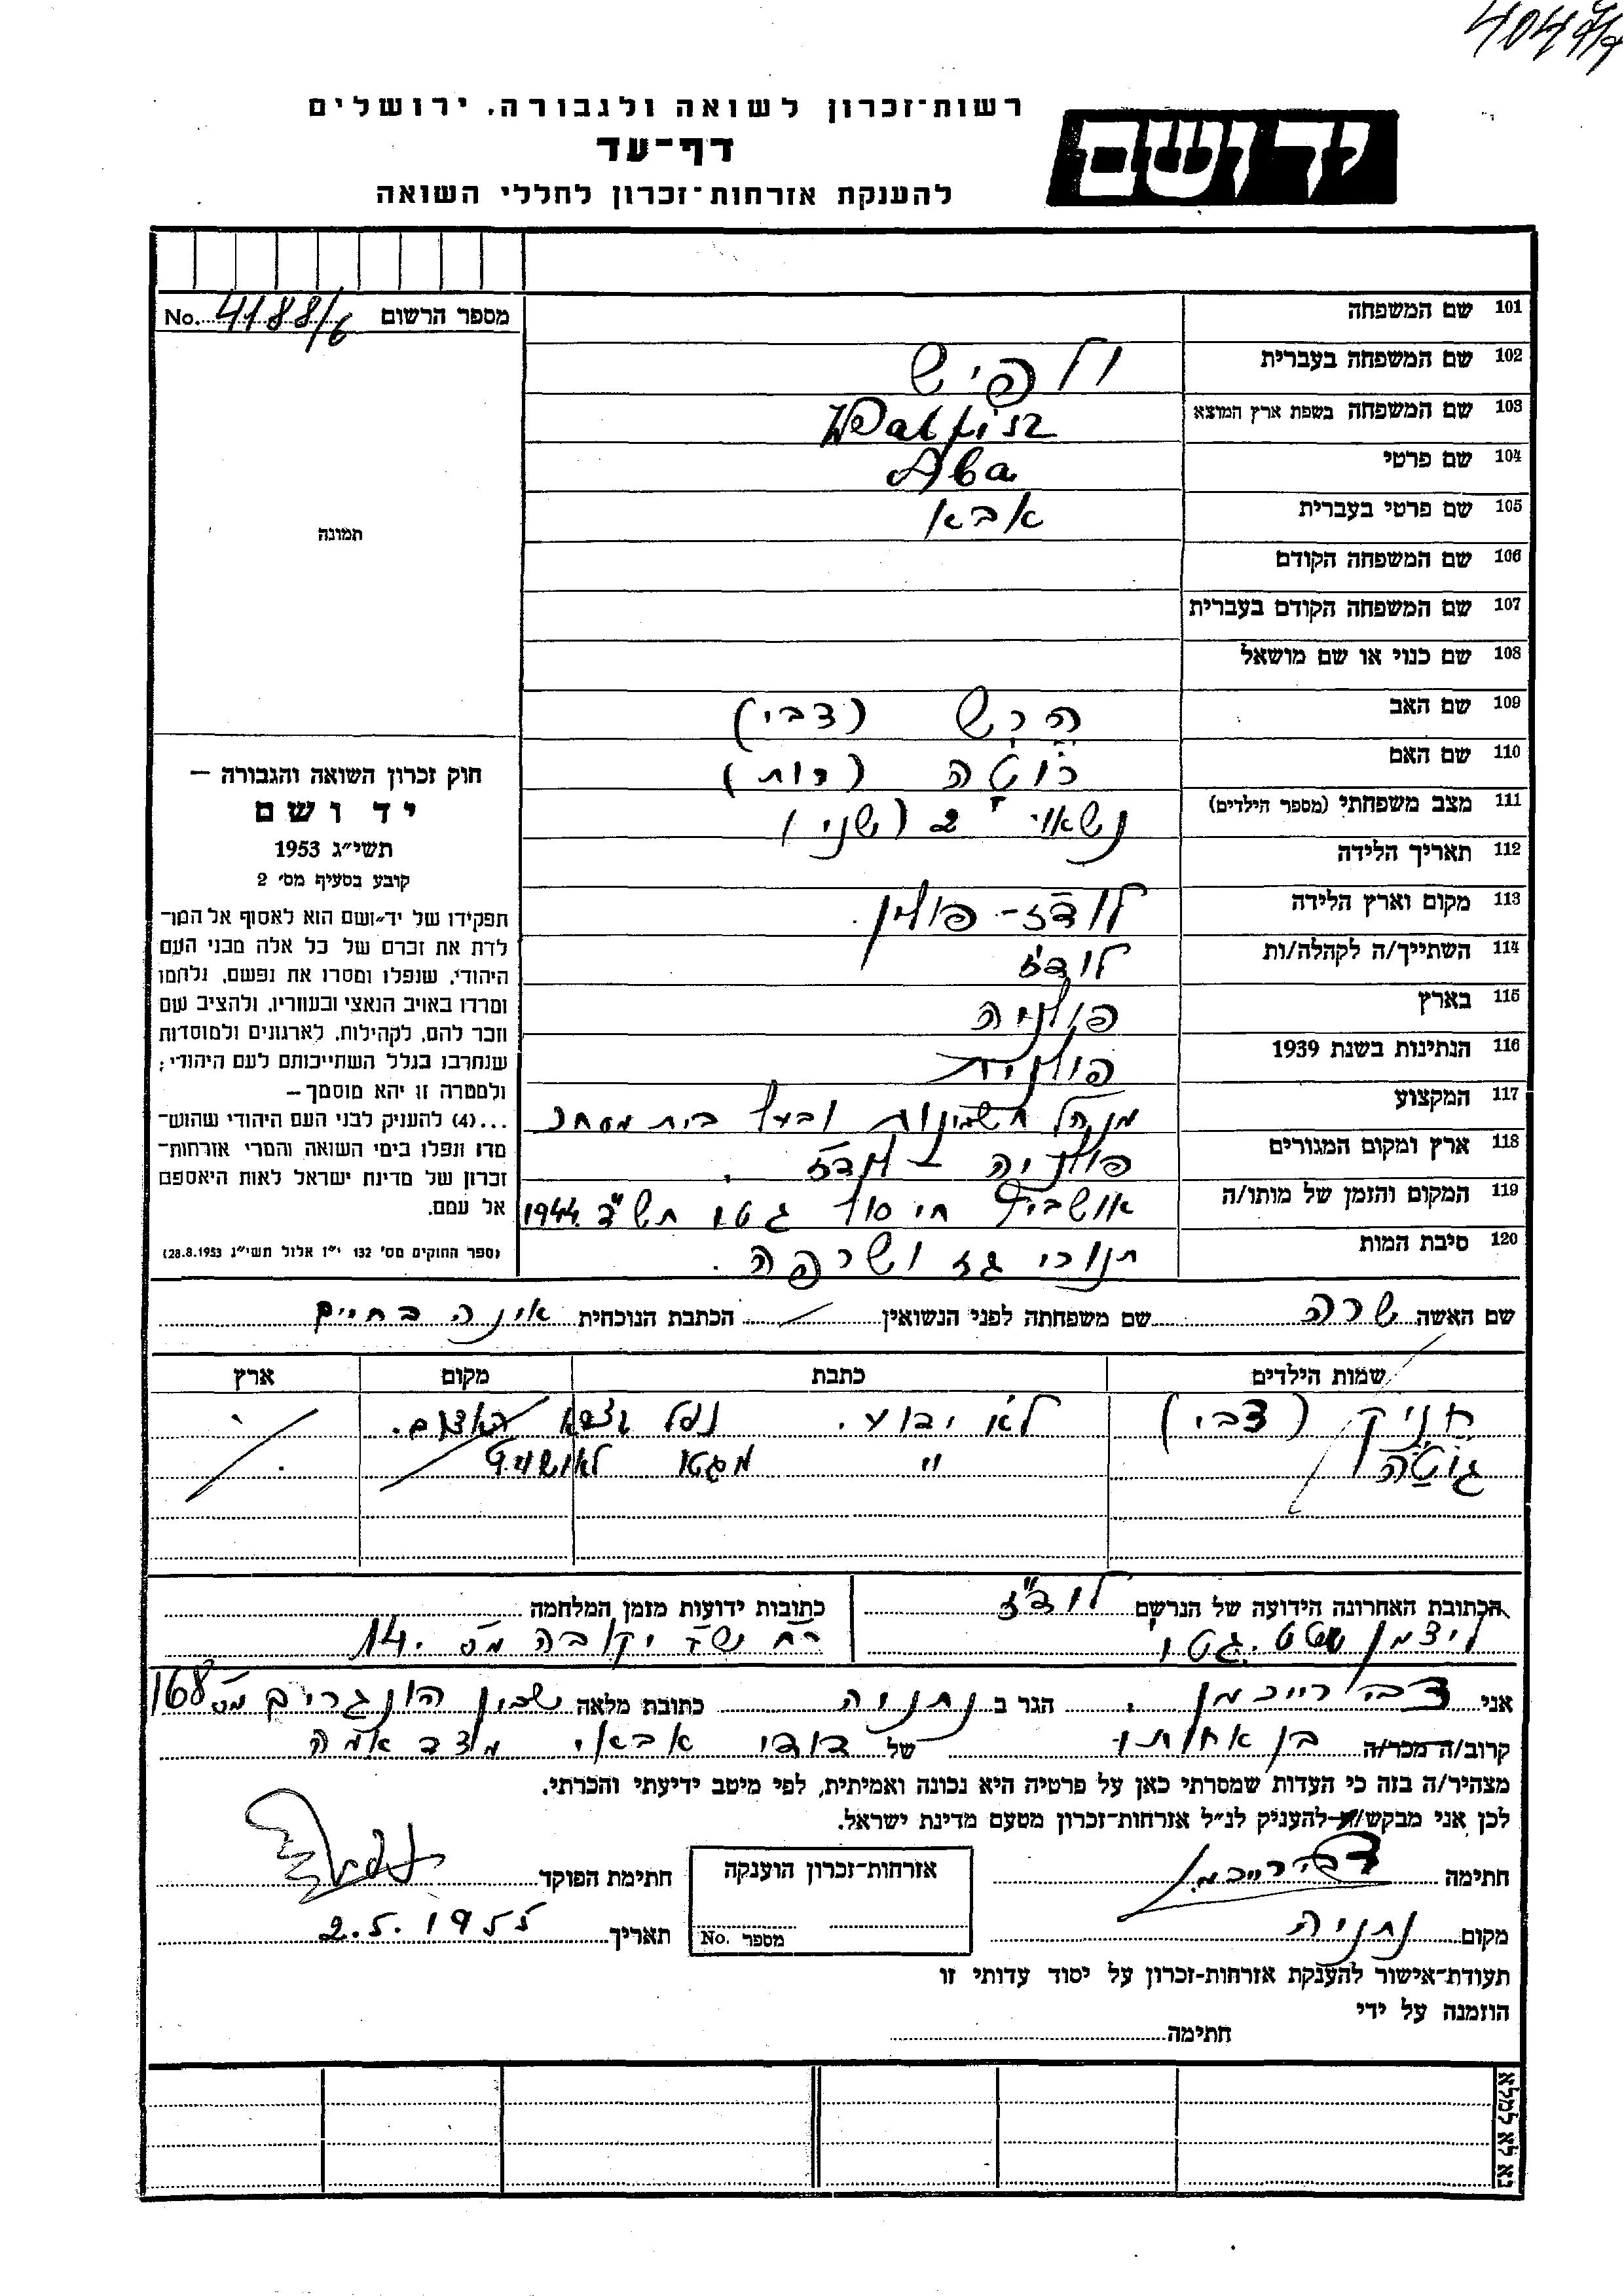 רשות־זכרון לשואה ולגבורה, ירושלים
דף־עד
להענקת אזרחות־זכרון לחללי השואה
יד ושם
מספר הרשום No. 4188/6
תמונה
101 שם המשפחה
102 שם המשפחה בעברית ולפיש
103 שם המשפחה בשפת ארץ המוצא Walfisz
104 שם פרטי Aba
105 שם פרטי בעברית אבא
106 שם המשפחה הקודם
107 שם המשפחה הקודם בעברית
108 שם כנוי או שם מושאל
109 שם האב הרש (צבי)
110 שם האם רוטה (רות)
111 מצב משפחתי (מספר הילדים) נשאוי 2 (שני)
112 תאריך הלידה
113 מקום וארץ הלידה לודז - פולין.
114 השתייך/ה לקהלה/ות לודז
115 בארץ פולניה
116 הנתינות בשנת 1939 פולנית
117 המקצוע מנהל חשבונות ובעל בית מסחר
118 ארץ ומקום המגורים פולניה - לודז.
119 המקום והזמן של מותו/ה חיסול גטו תש"ד 1944
120 סיבת המות תנורי גז ושרפה.
חוק זכרון השואה והגבורה —
יד ושם
תשי״ג 1953
קובע בסעיף מס׳ 2
תפקידו של יד־ושם הוא לאסוף אל המו־
לדת את זכרם של כל אלה מבני העם
היהודי, שנפלו ומסרו את נפשם, נלחמו
ומרדו באויב הנאצי ובעוזריו, ולהציב שם
וזכר להם, לקהילות, לארגונים ולמוסדות
שנחרבו בגלל השתייכותם לעם היהודי;
ולמטרה זו יהא מוסמך —
...(4) להעניק לבני העם היהודי שהוש־
מדו ונפלו בימי השואה והמרי אזרחות־
זכרון של מדינת ישראל לאות היאספם
אל עמם.
(ספר החוקים מס׳ 132 י״ז אלול תשי״ג 28.8.1953)
שם האשה שרה שם משפחתה לפני הנשואין הכתבת הנוכחית אינה בחיים
שמות הילדים כתבת מקום ארץ
(צבי) לא ידוע. נפל
גוטה " מגטו
הכתובת האחרונה הידועה של הנרשם לודז
ליצמן שטט. גטו
כתובות ידועות מזמן המלחמה
14.
אני צבי רייכמן, הגר ב נתניה כתובת מלאה שכון מס 168
קרוב/ה מכר/ה בן אחותו של דודי אבא מצד אמה
מצהיר/ה בזה כי העדות שמסרתי כאן על פרטיה היא נכונה ואמיתית, לפי מיטב ידיעתי והכרתי.
לכן אני מבקש/ת להעניק לנ״ל אזרחות־זכרון מטעם מדינת ישראל.
חתימה צבי רייכמן
אזרחות־זכרון הוענקה
מספר No.
חתימת הפוקד
מקום נתניה
תאריך 2.5.1955
תעודת־אישור להענקת אזרחות־זכרון על יסוד עדותי זו
הוזמנה על ידי
חתימה
נא לא למלא